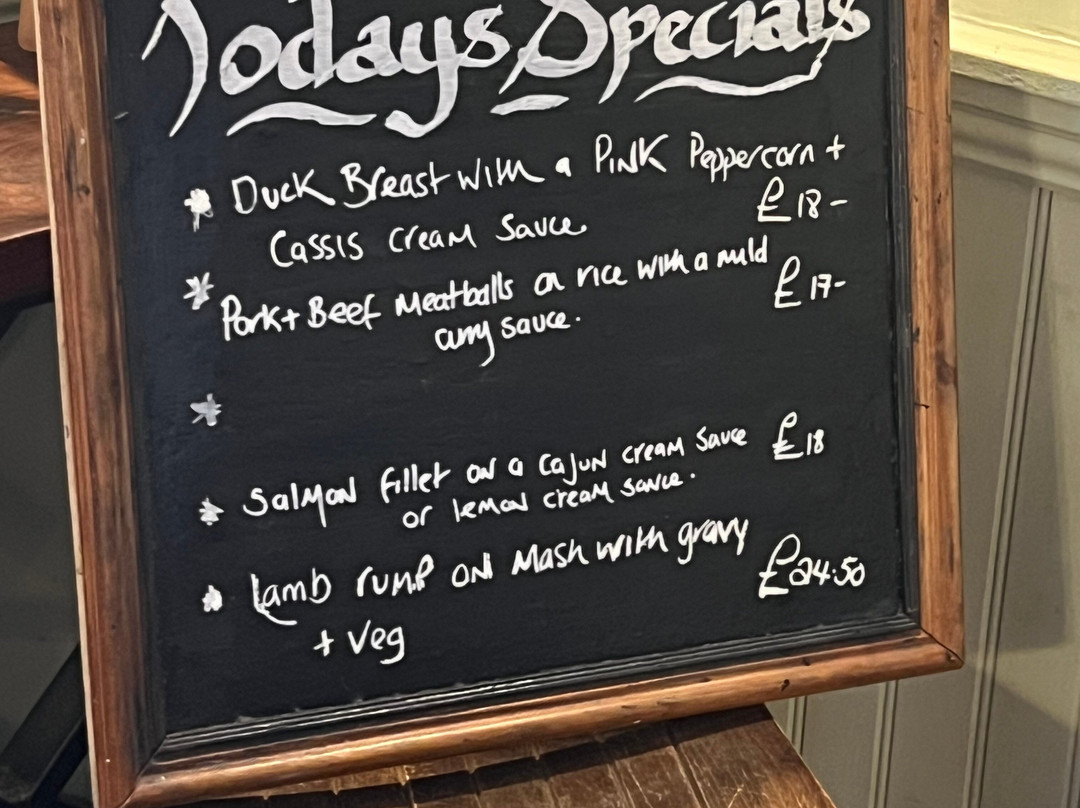 Todays Specials
* Duck Breast with a Pink Peppercorn +
Cassis Cream Sauce £18-
* Pork + Beef Meatballs on rice with a mild £17-
curry sauce.
*
* Salmon fillet on a Cajun cream sauce £18
or lemon cream sauce.
* Lamb rump on Mash with gravy
+ Veg £24.50